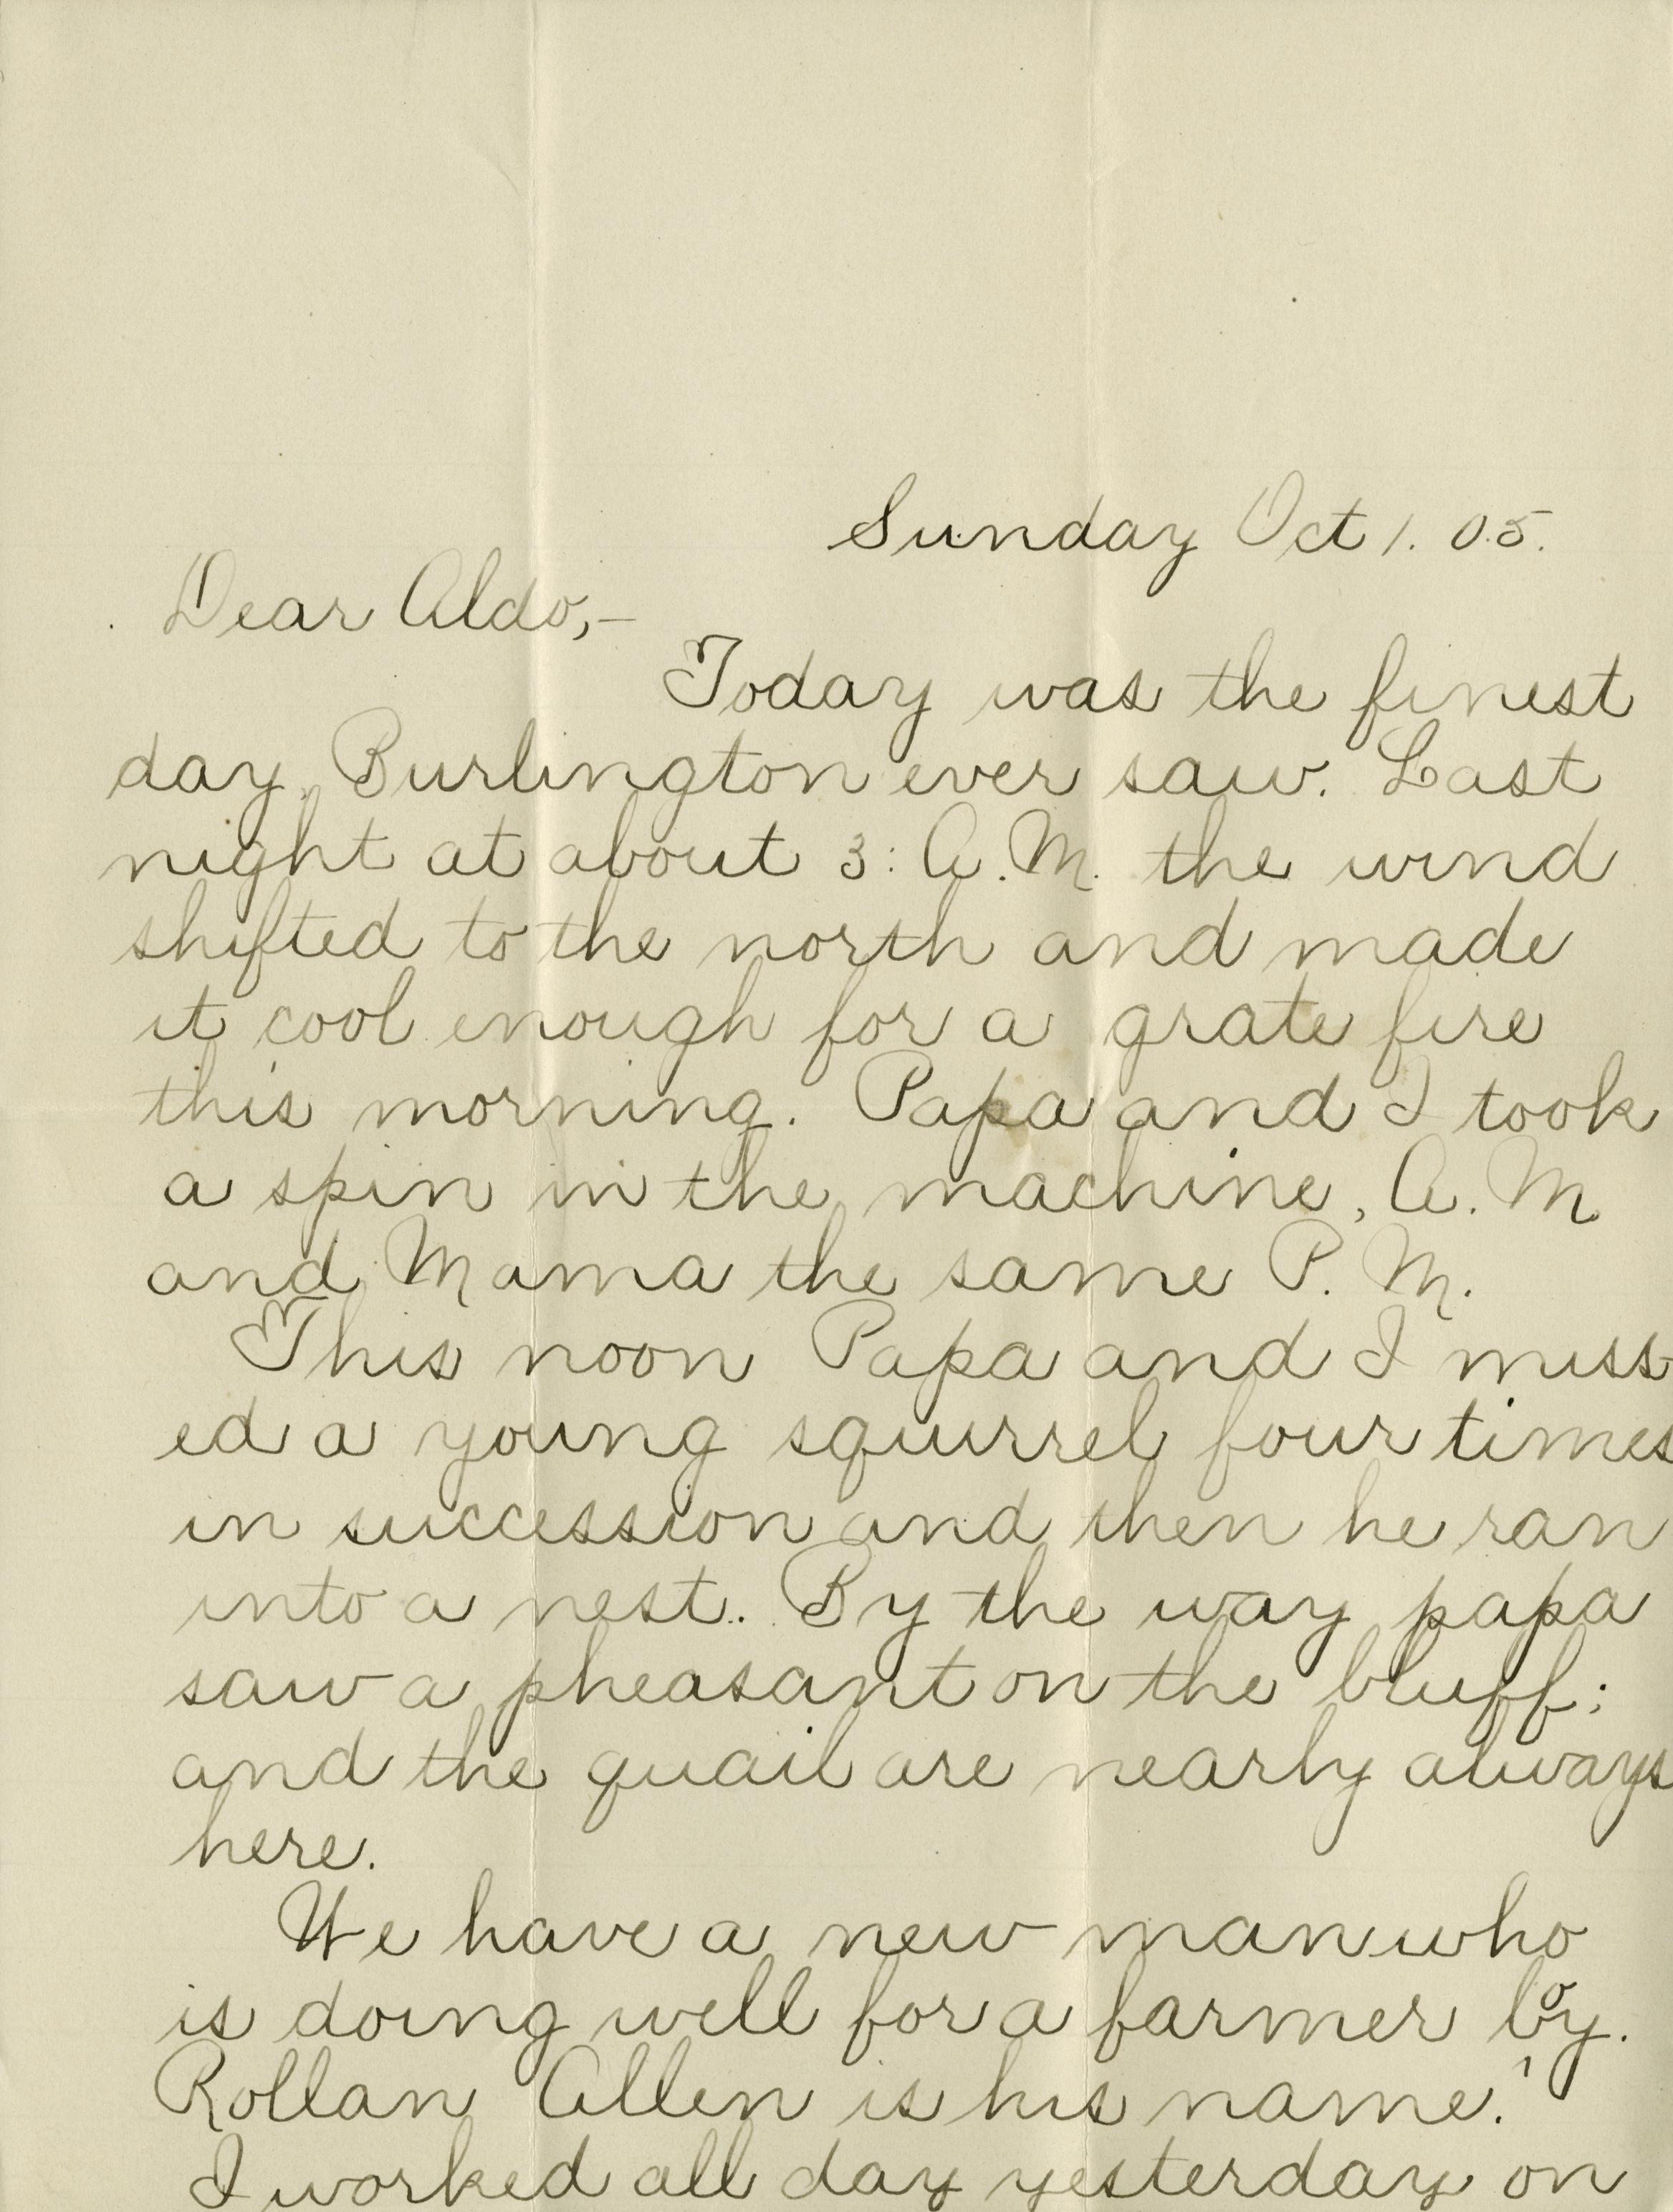 Sunday Oct 1. 05.
Dear Aldo,—
Today was the finest
day Burlington ever saw. Last
night at about 3: A.M. the wind
shifted to the north and made
it cool enough for a grate fire
this morning. Papa and I took
a spin in the machine, A. M
and Mama the same P. M.
This noon Papa and I miss-
ed a young squirrel four times
in succession and then he ran
into a nest. By the way papa
saw a pheasant on the bluff;
and the quail are nearly always
here.
We have a new man who
is doing well for a farmer boy.
Rollan Allen is his name.
I worked all day yesterday on